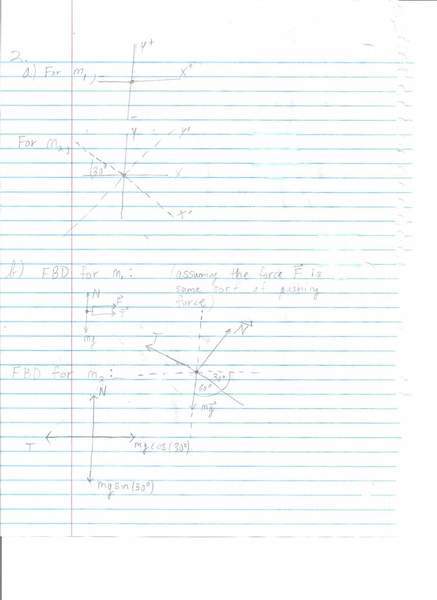 2.
a) For m₁,
y⁺
x⁺
For m₂,
y
y'
30°
x
x'
b) FBD for m₁:
(assuming the force F⃗ is
some sort of pushing
force)
N
F⃗
mg
N⃗
T
FBD for m₂:
30°
60°
mg⃗
N
T
mg cos(30°)
mg sin(30°)